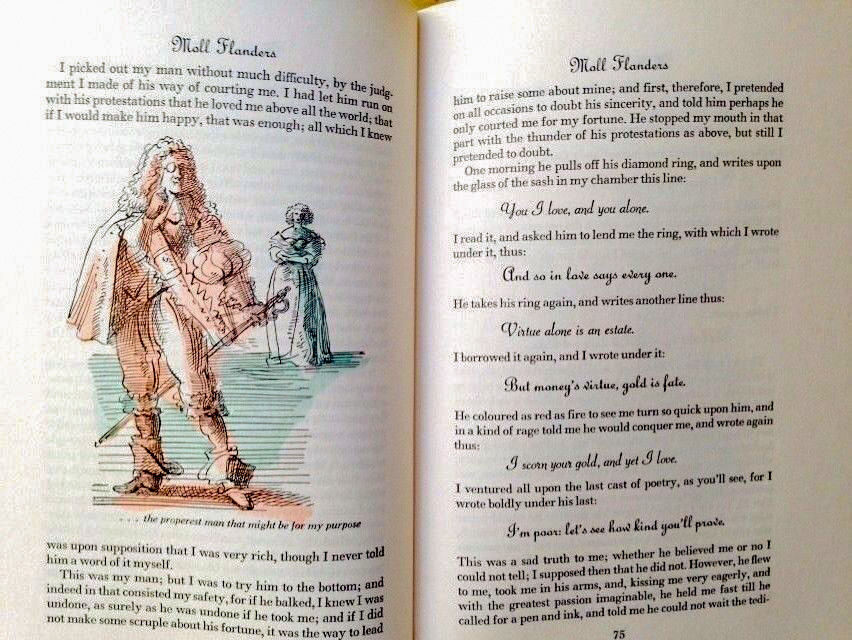 Moll Flanders
I picked out my man without much difficulty, by the judg-
ment I made of his way of courting me. I had let him run on
with his protestations that he loved me above all the world; that
if I would make him happy, that was enough; all which I knew
. . . the properest man that might be for my purpose
was upon supposition that I was very rich, though I never told
him a word of it myself.
This was my man; but I was to try him to the bottom; and
indeed in that consisted my safety, for if he balked, I knew I was
undone, as surely as he was undone if he took me; and if I did
not make some scruple about his fortune, it was the way to lead
Moll Flanders
him to raise some about mine; and first, therefore, I pretended
on all occasions to doubt his sincerity, and told him perhaps he
only courted me for my fortune. He stopped my mouth in that
part with the thunder of his protestations as above, but still I
pretended to doubt.
One morning he pulls off his diamond ring, and writes upon
the glass of the sash in my chamber this line:
You I love, and you alone.
I read it, and asked him to lend me the ring, with which I wrote
under it, thus:
And so in love says every one.
He takes his ring again, and writes another line thus:
Virtue alone is an estate.
I borrowed it again, and I wrote under it:
But money's virtue, gold is fate.
He coloured as red as fire to see me turn so quick upon him, and
in a kind of rage told me he would conquer me, and wrote again
thus:
I scorn your gold, and yet I love.
I ventured all upon the last cast of poetry, as you'll see, for I
wrote boldly under his last:
I'm poor: let's see how kind you'll prove.
This was a sad truth to me; whether he believed me or no I
could not tell; I supposed then that he did not. However, he flew
to me, took me in his arms, and, kissing me very eagerly, and
with the greatest passion imaginable, he held me fast till he
called for a pen and ink, and told me he could not wait the tedi-
75